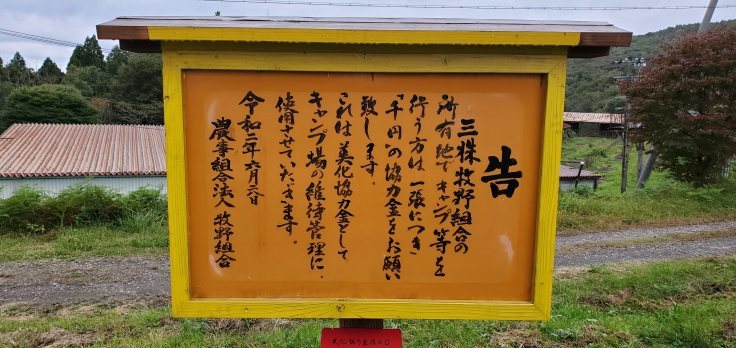 告
三株牧野組合の
所有地で、キャンプ等を
行う方は、一張につき
「千円」の協力金をお願い
致します。
これは、美化協力金として
キャンプ場の維持管理に、
使用させていただきます。
令和二年六月二日
農事組合法人 牧野組合